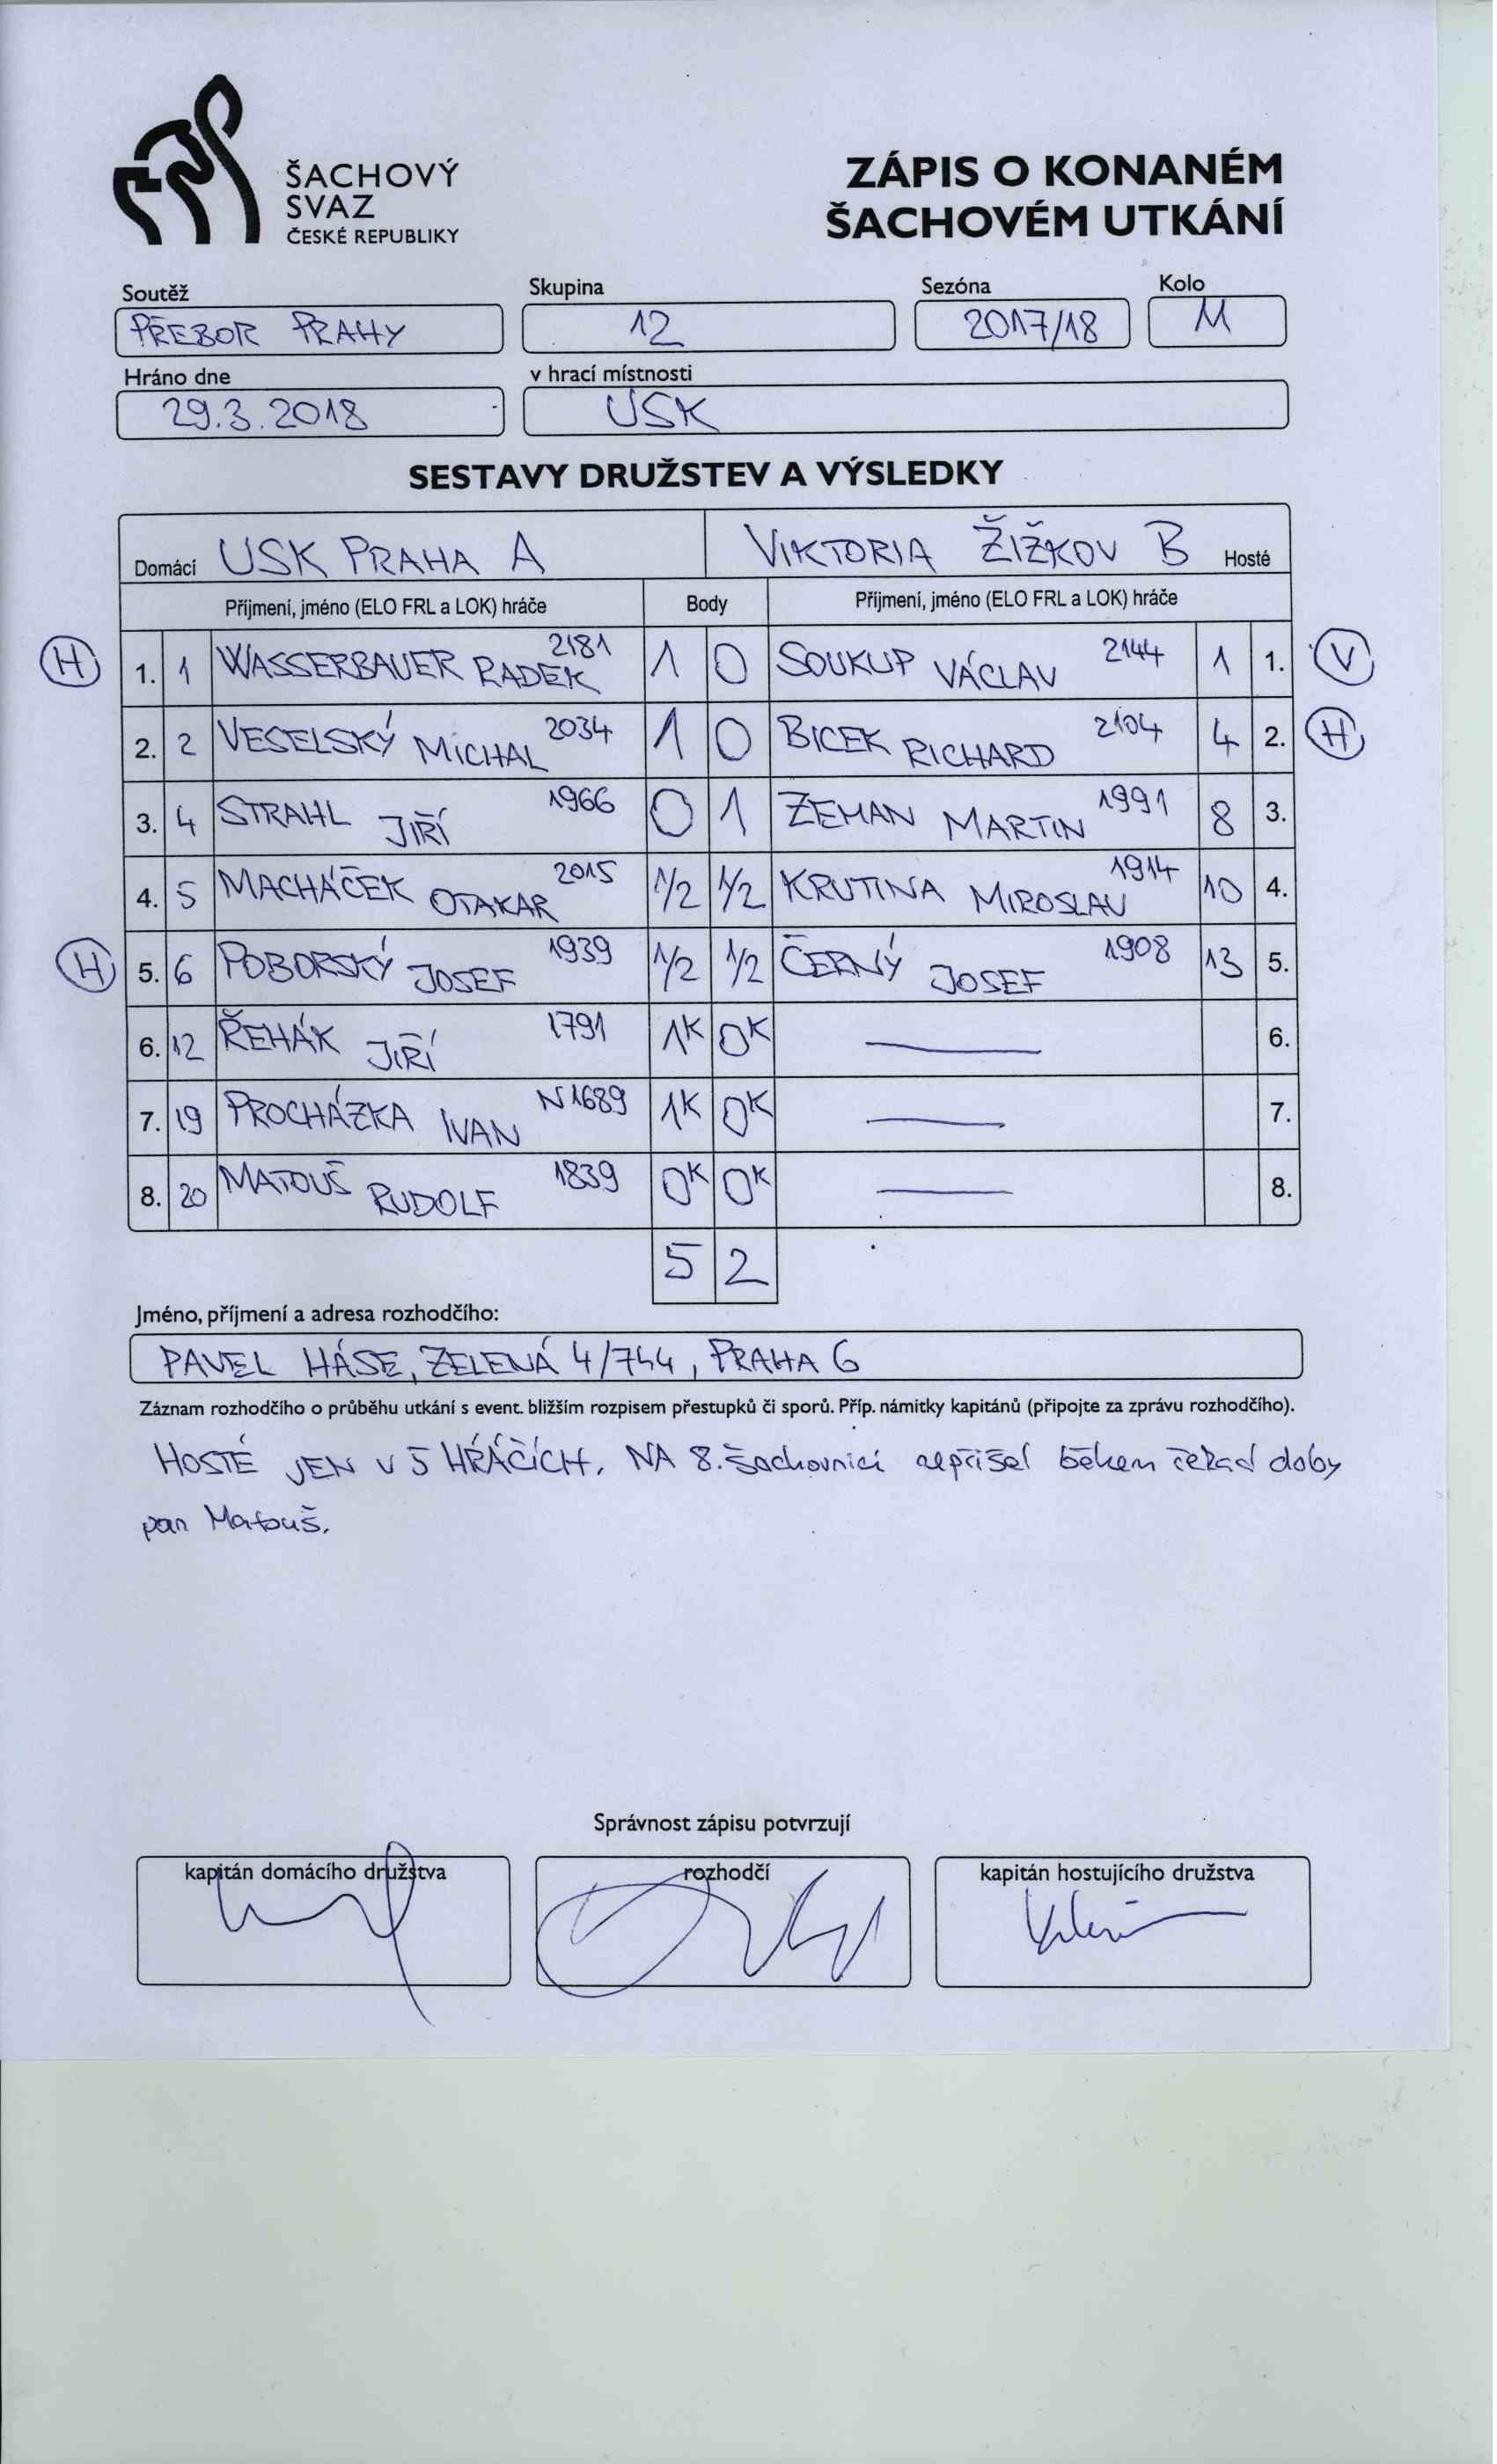 ŠACHOVÝ
SVAZ
ČESKÉ REPUBLIKY
ZÁPIS O KONANÉM
ŠACHOVÉM UTKÁNÍ
Soutěž Skupina Sezóna Kolo
PŘEBOR PRAHY 12 2017/18 11
Hráno dne v hrací místnosti
29.3.2018 USK
SESTAVY DRUŽSTEV A VÝSLEDKY
Domácí USK PRAHA A VIKTORIA ŽIŽKOV B Hosté
Příjmení, jméno (ELO FRL a LOK) hráče Body Příjmení, jméno (ELO FRL a LOK) hráče
H 1. 1 WASSERBAUER RADEK 2181 1 0 SOUKUP VÁCLAV 2144 1 1. V
2. 2 VESELSKÝ MICHAL 2034 1 0 BICEK RICHARD 2104 4 2. H
3. 4 STRAHL JIŘÍ 1966 0 1 ZEMAN MARTIN 1991 8 3.
4. 5 MACHÁČEK OTAKAR 2015 1/2 1/2 KRUTINA MIROSLAV 1914 10 4.
H 5. 6 POBORSKÝ JOSEF 1939 1/2 1/2 ČERNÝ JOSEF 1908 13 5.
6. 12 ŘEHÁK JIŘÍ 1791 1K 0K 6.
7. 19 PROCHÁZKA IVAN N1689 1K 0K 7.
8. 20 MATOUŠ RUDOLF 1839 0K 0K 8.
5 2
Jméno, příjmení a adresa rozhodčího:
PAVEL HÁSE, ZELENÁ 4/744, PRAHA 6
Záznam rozhodčího o průběhu utkání s event. bližším rozpisem přestupků či sporů. Příp. námitky kapitánů (připojte za zprávu rozhodčího).
HOSTÉ JEN V 5 HRÁČÍCH. NA 8. šachovnici nepřišel během čekací doby
pan Matouš.
Správnost zápisu potvrzují
kapitán domácího družstva rozhodčí kapitán hostujícího družstva